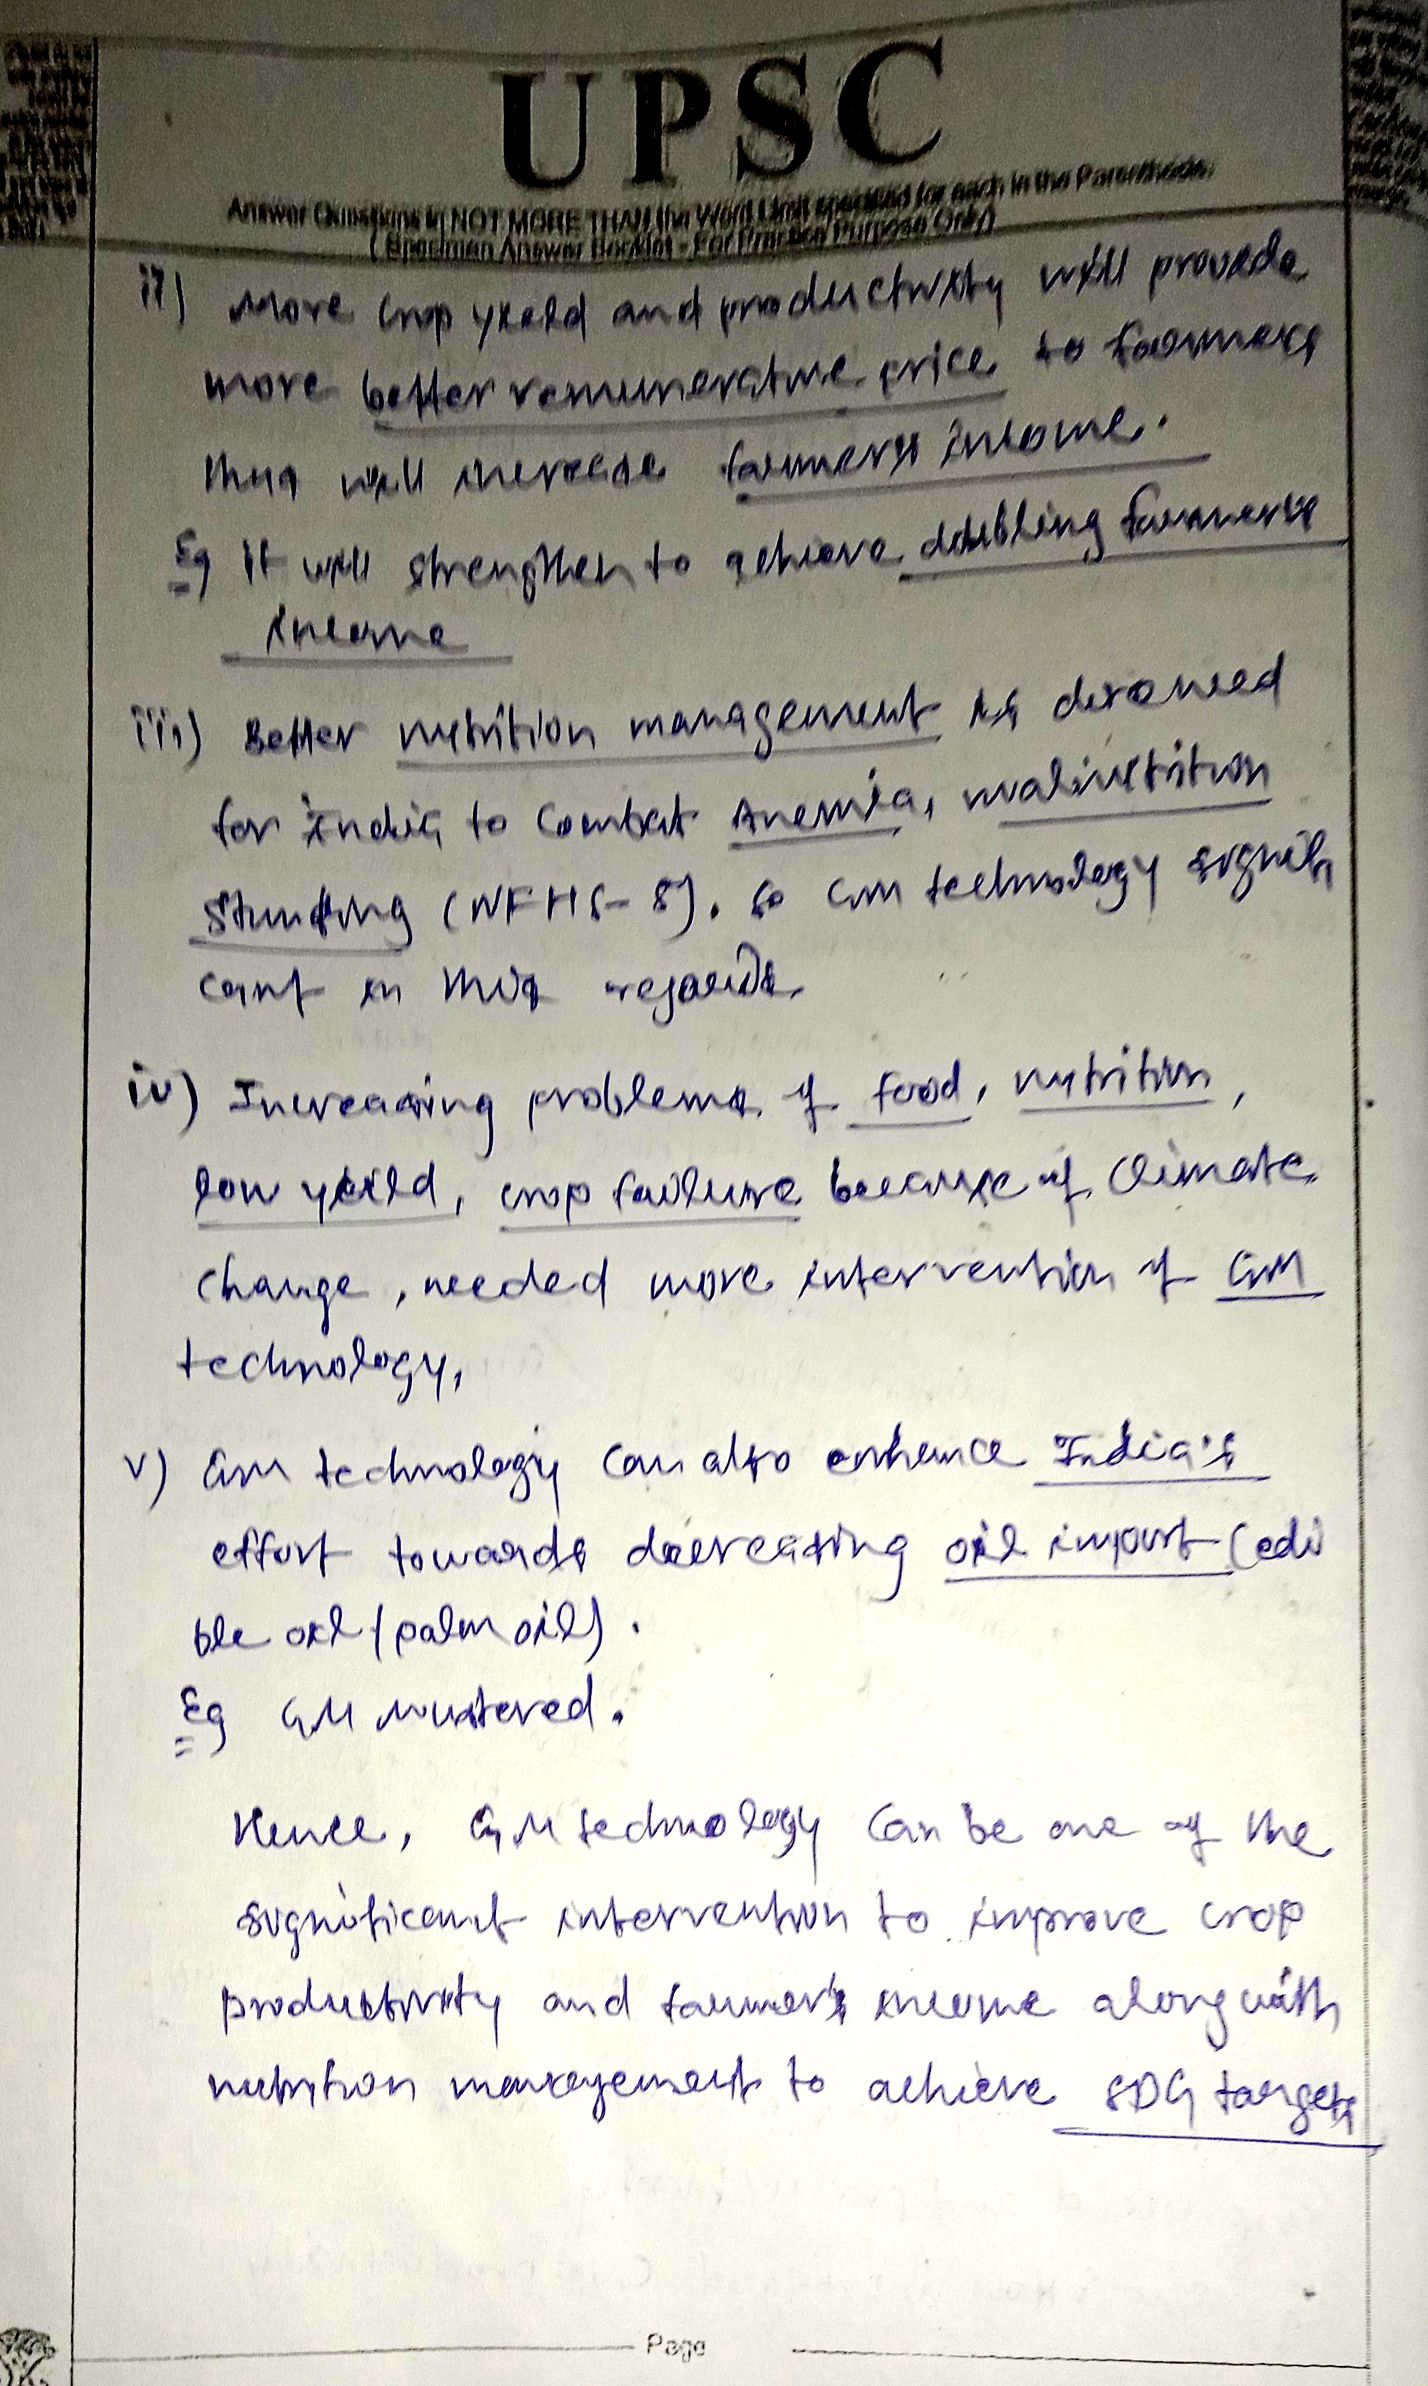 UPSC
Answer Questions in NOT MORE THAN the Word Limit specified for each in the Parenthesis.
( Specimen Answer Booklet - For Practice Purpose Only)
ii) More crop yield and productivity will provide
more better remunerative price to farmers
thus will increase farmers income.
Eg It will strengthen to achieve doubling farmers
income
iii) Better nutrition management is
for India to combat Anemia, malnutrition
stunting (NFHS-5). So GM technology signifi
cant in this regards
iv) Increasing problems of food, nutrition,
low yield, crop failure because of climate
change, needed more intervention of GM
technology,
v) GM technology can also enhance India's
effort towards decreasing oil import (edi
ble oil/palm oil).
Eg GM mustered.
Hence, GM technology can be one of the
significant intervention to improve crop
productivity and farmer's income alongwith
nutrition management to achieve SDG targets
Page